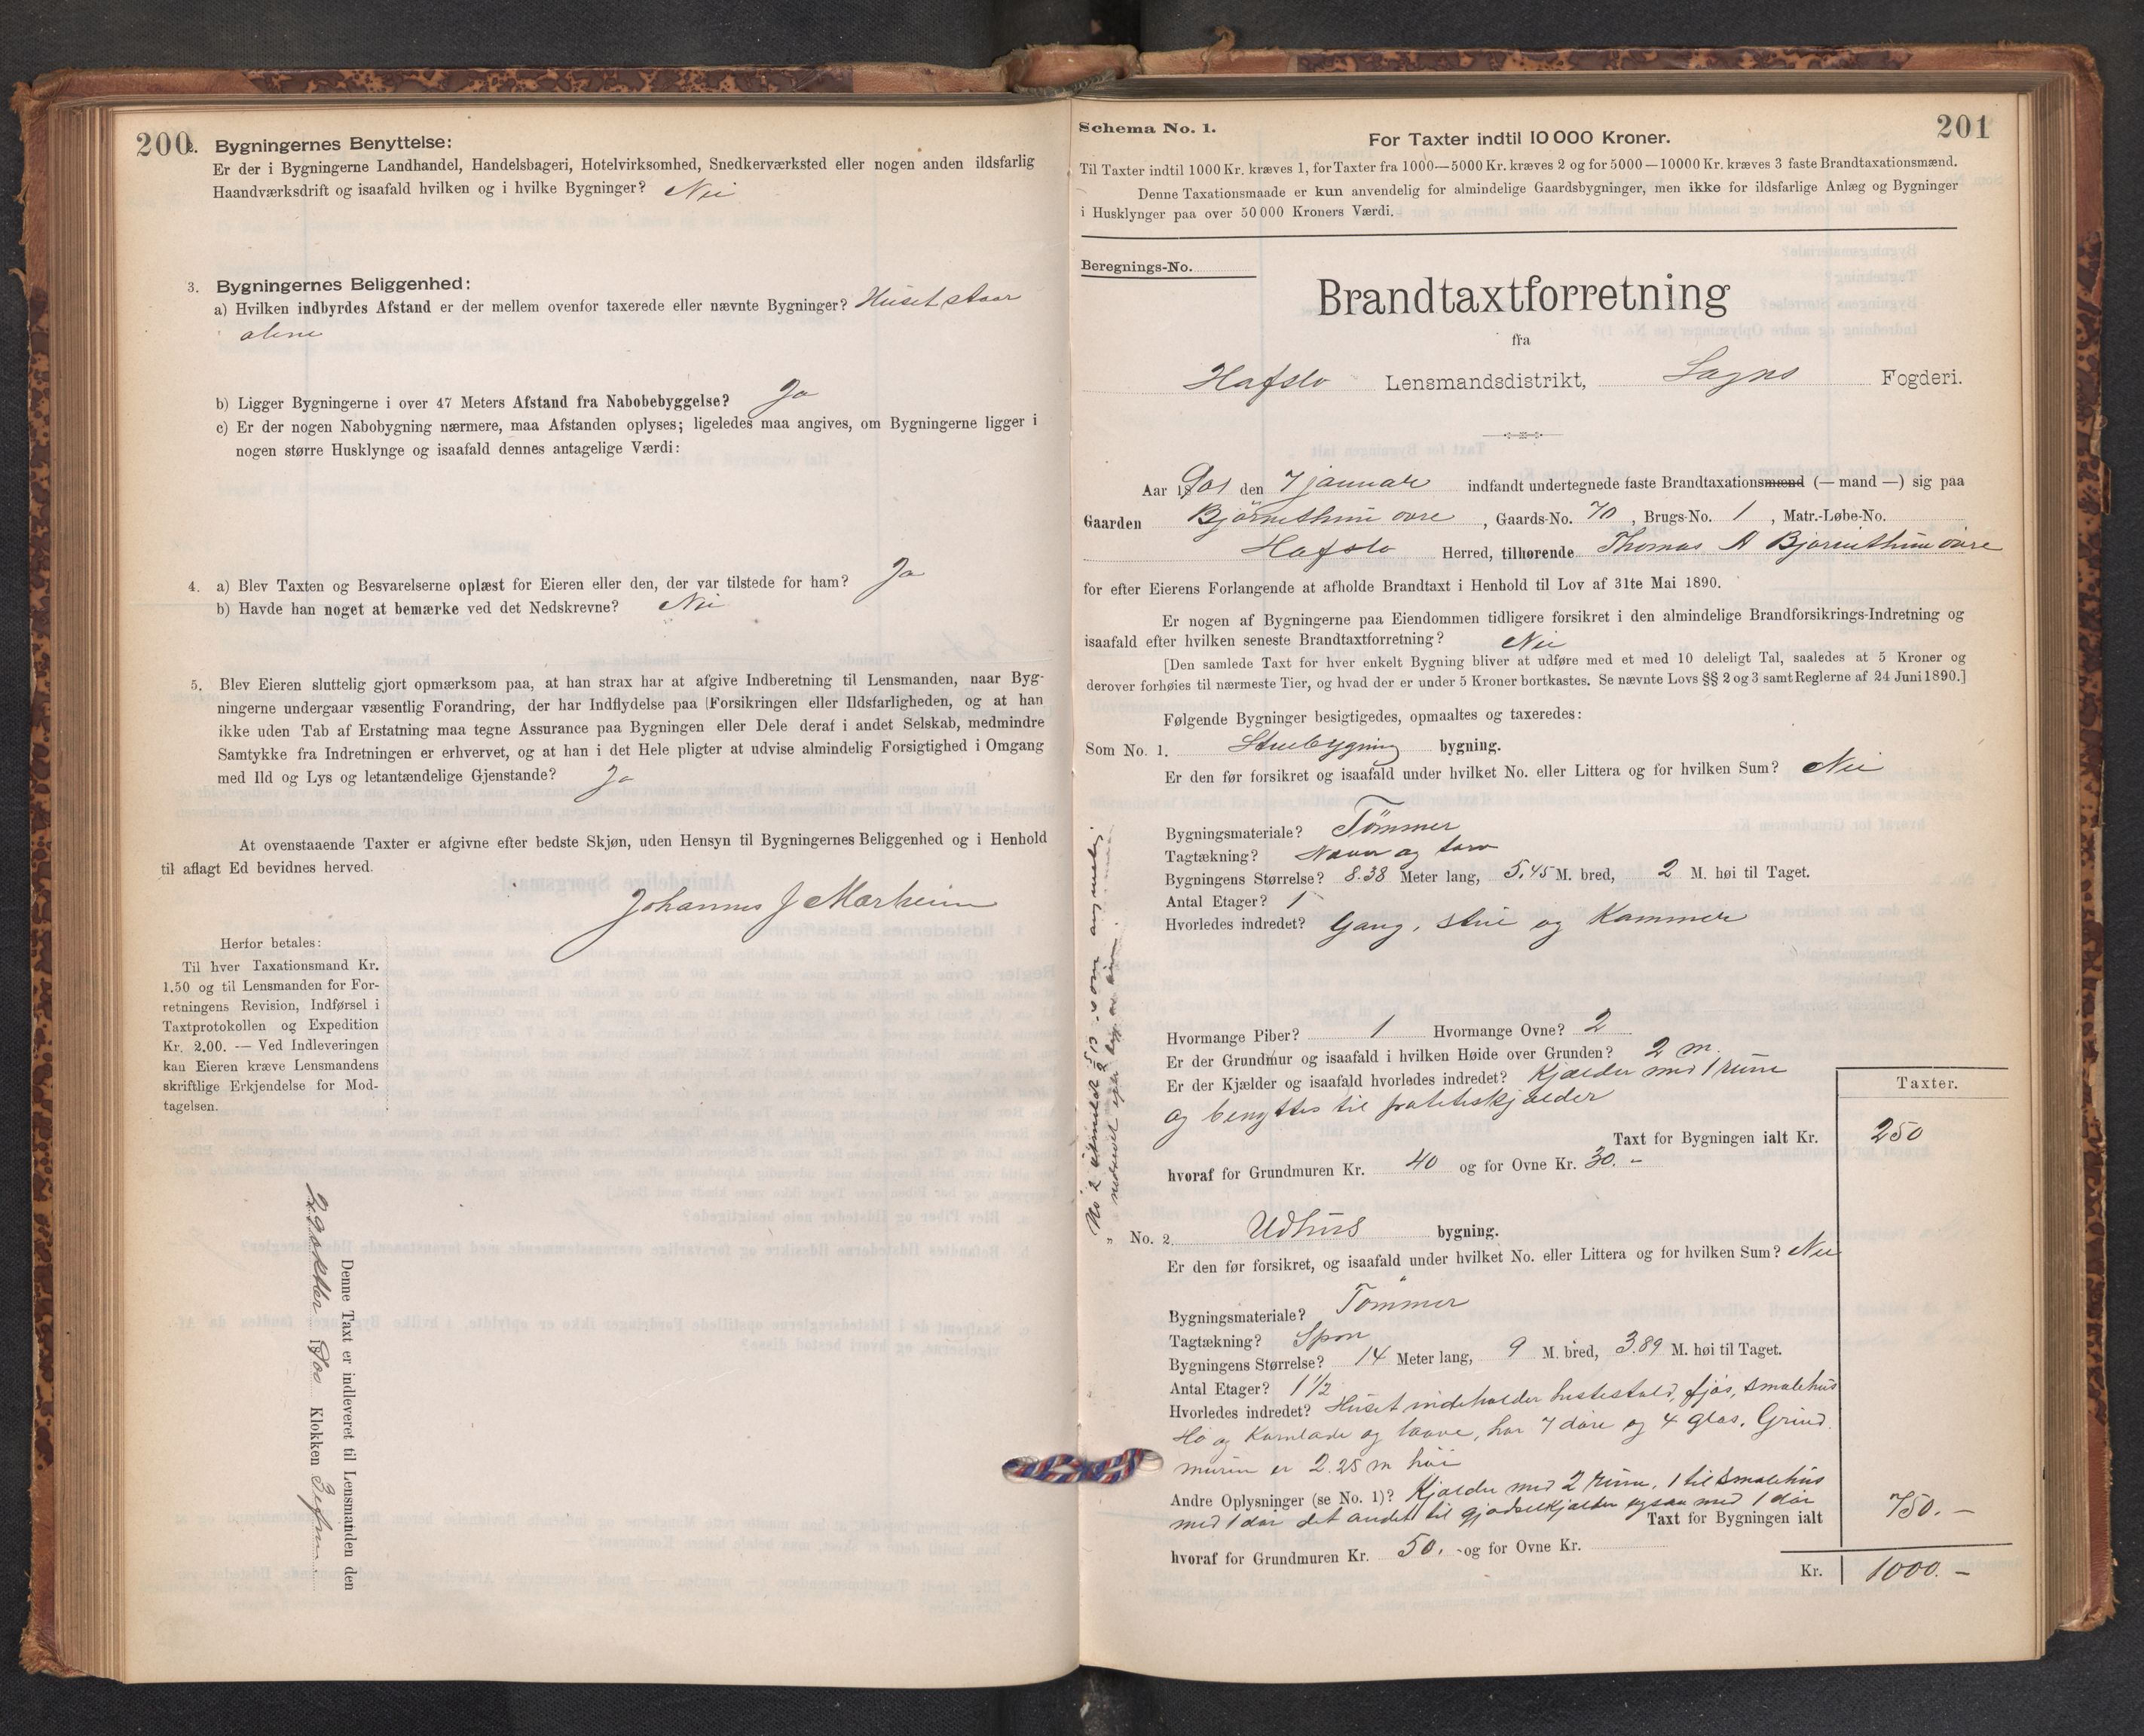 200
2. Bygningernes Benyttelse:
Er der i Bygningerne Landhandel, Handelsbageri, Hotelvirksomhed, Snedkerværksted eller nogen anden ildsfarlig
Haandværksdrift og isaafald hvilken og i hvilke Bygninger? Nei
3. Bygningernes Beliggenhed:
a) Hvilken indbyrdes Afstand er der mellem ovenfor taxerede eller nævnte Bygninger? Huset staar
alene
b) Ligger Bygningerne i over 47 Meters Afstand fra Nabobebyggelse? Ja
c) Er der nogen Nabobygning nærmere, maa Afstanden oplyses; ligeledes maa angives, om Bygningerne ligger i
nogen større Husklynge og isaafald dennes antagelige Værdi:
4. a) Blev Taxten og Besvarelserne oplæst for Eieren eller den, der var tilstede for ham? Ja
b) Havde han noget at bemærke ved det Nedskrevne? Nei
5. Blev Eieren sluttelig gjort opmærksom paa, at han strax har at afgive Indberetning til Lensmanden, naar Byg-
ningerne undergaar væsentlig Forandring, der har Indflydelse paa (Forsikringen eller Ildsfarligheden, og at han
ikke uden Tab af Erstatning maa tegne Assurance paa Bygningen eller Dele deraf i andet Selskab, medmindre
Samtykke fra Indretningen er erhvervet, og at han i det Hele pligter at udvise almindelig Forsigtighed i Omgang
med Ild og Lys og letantændelige Gjenstande? Ja
At ovenstaaende Taxter er afgivne efter bedste Skjøn, uden Hensyn til Bygningernes Beliggenhed og i Henhold
til aflagt Ed bevidnes herved.
Johannes J Marheim
Herfor betales:
Til hver Taxationsmand Kr.
1.50 og til Lensmanden for For-
retningens Revision, Indførsel i
Taxtprotokollen og Expedition
Kr. 2.00. — Ved Indleveringen
kan Eieren kræve Lensmandens
skriftlige Erkjendelse for Mod-
tagelsen.
Denne Taxt er indleveret til Lensmanden den
29 oktbr 1900 Klokken 3 efm
201
Schema No. 1.
For Taxter indtil 10 000 Kroner.
Til Taxter indtil 1000 Kr. kræves 1, for Taxter fra 1000—5000 Kr. kræves 2 og for 5000—10000 Kr. kræves 3 faste Brandtaxationsmænd.
Denne Taxationsmaade er kun anvendelig for almindelige Gaardsbygninger, men ikke for ildsfarlige Anlæg og Bygninger
i Husklynger paa over 50 000 Kroners Værdi.
Beregnings-No.
Brandtaxtforretning
fra
Hafslo Lensmandsdistrikt, Sogns Fogderi.
Aar 1901 den 7 januar indfandt undertegnede faste Brandtaxationsmænd (— mand —) sig paa
Gaarden Bjørnethun øvre, Gaards-No. 70, Brugs-No. 1, Matr.-Løbe-No.
Hafslo Herred, tilhørende Thomas A Bjørnethun øvre
for efter Eierens Forlangende at afholde Brandtaxt i Henhold til Lov af 31te Mai 1890.
Er nogen af Bygningerne paa Eiendommen tidligere forsikret i den almindelige Brandforsikrings-Indretning og
isaafald efter hvilken seneste Brandtaxtforretning? Nei
[Den samlede Taxt for hver enkelt Bygning bliver at udføre med et med 10 deleligt Tal, saaledes at 5 Kroner og
derover forhøies til nærmeste Tier, og hvad der er under 5 Kroner bortkastes. Se nævnte Lovs §§ 2 og 3 samt Reglerne af 24 Juni 1890.]
Følgende Bygninger besigtigedes, opmaaltes og taxeredes:
Som No. 1. Stuebygning bygning.
Er den før forsikret og isaafald under hvilket No. eller Littera og for hvilken Sum? Nei
Bygningsmateriale? Tømmer
Tagtækning? Næver og torv
Bygningens Størrelse? 8.38 Meter lang, 5.45 M. bred, 2 M. høi til Taget.
Antal Etager? 1
Hvorledes indredet? Gang, stue og Kammer
Hvormange Piber? 1 Hvormange Ovne? 2
Er der Grundmur og isaafald i hvilken Høide over Grunden? 2 m.
Er der Kjælder og isaafald hvorledes indredet? Kjælder med 1 rum
og benyttes til poteteskjælder
Taxter.
Taxt for Bygningen ialt Kr. 250
hvoraf for Grundmuren Kr. 40 og for Ovne Kr. 30. -
No 2 som
„ No. 2. Udhus bygning.
Er den før forsikret, og isaafald under hvilket No. eller Littera og for hvilken Sum? Nei
Bygningsmateriale? Tømmer
Tagtækning? Spon
Bygningens Størrelse? 14 Meter lang, 9 M. bred, 3.89 M. høi til Taget.
Antal Etager? 1 1/2
Hvorledes indredet? Huset indeholder hestestald, fjøs, smalehus
Hø og Kornlade og laave, har 7 døre og 4 glas. Grund
muren er 2.25 m høi
Andre Oplysninger (se No. 1)? Kjælder med 2 rum, 1 til smalehus
med 1 dør det andet til gjødselkjælder ogsaa med 1 dør
Taxt for Bygningen ialt 750. -
hvoraf for Grundmuren Kr. 50. - og for Ovne Kr.
Kr. 1000. -